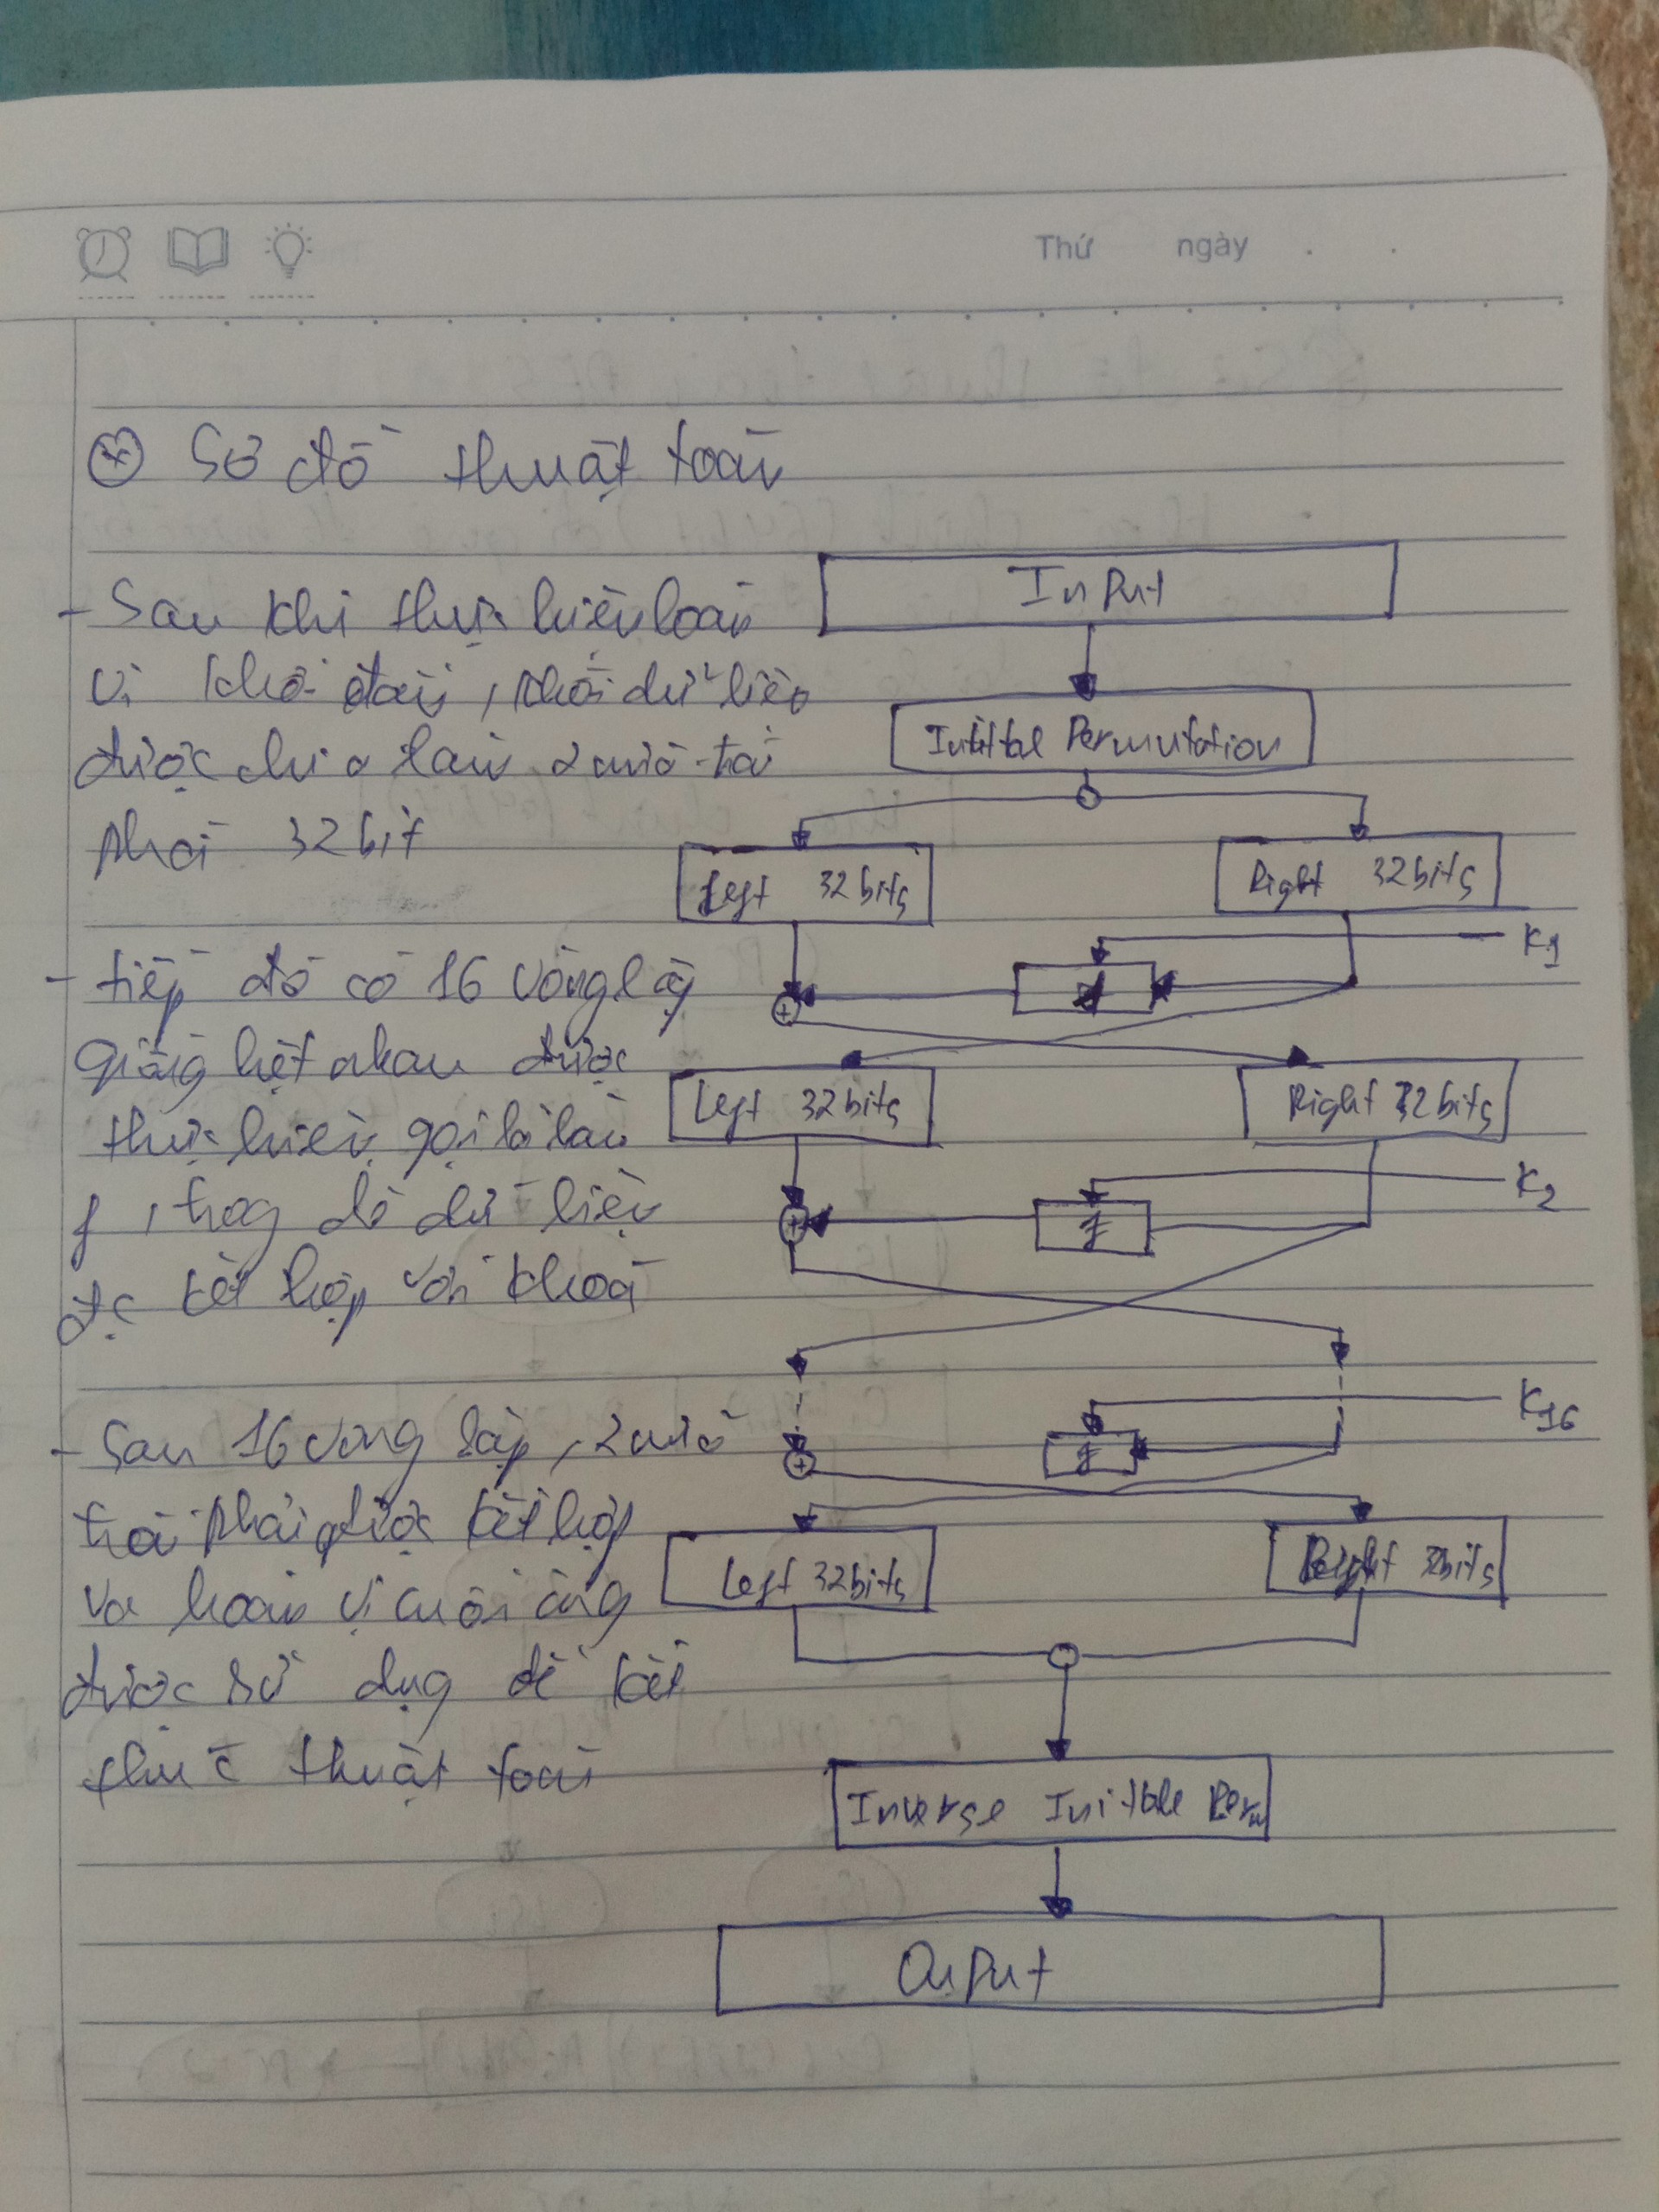 Thứ ngày . .
Sơ đồ thuật toán
- Sau khi thực hiện hoán
vị khởi đầu, khối dữ liệu
được chia làm 2 nửa trái
phải 32 bit
- tiếp đó có 16 vòng lặp
giống hệt nhau được
thực hiện gọi là hàm
f, trog đó dữ liệu
đc kết hợp với khoá
- Sau 16 vòng lặp, 2 nửa
trái phải được kết hợp
và hoán vị cuối cùng
được sử dụg để kết
thúc thuật toán
Input
Permutation
Left 32 bits
Right 32 bits
K1
f
+
Left 32 bits
Right 32 bits
K2
f
+
K16
f
+
Left 32 bits
Right 32 bits
Inverse Initble Perm
Ouput